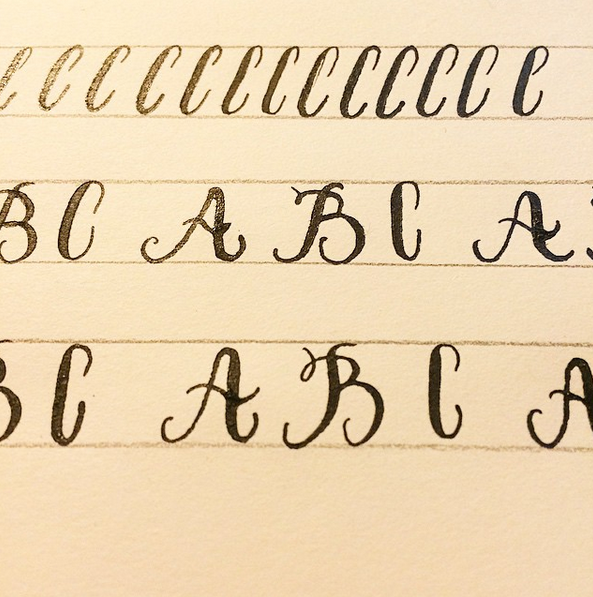 C C C C C C C C C C C C C
B C A B C A
B C A B C A